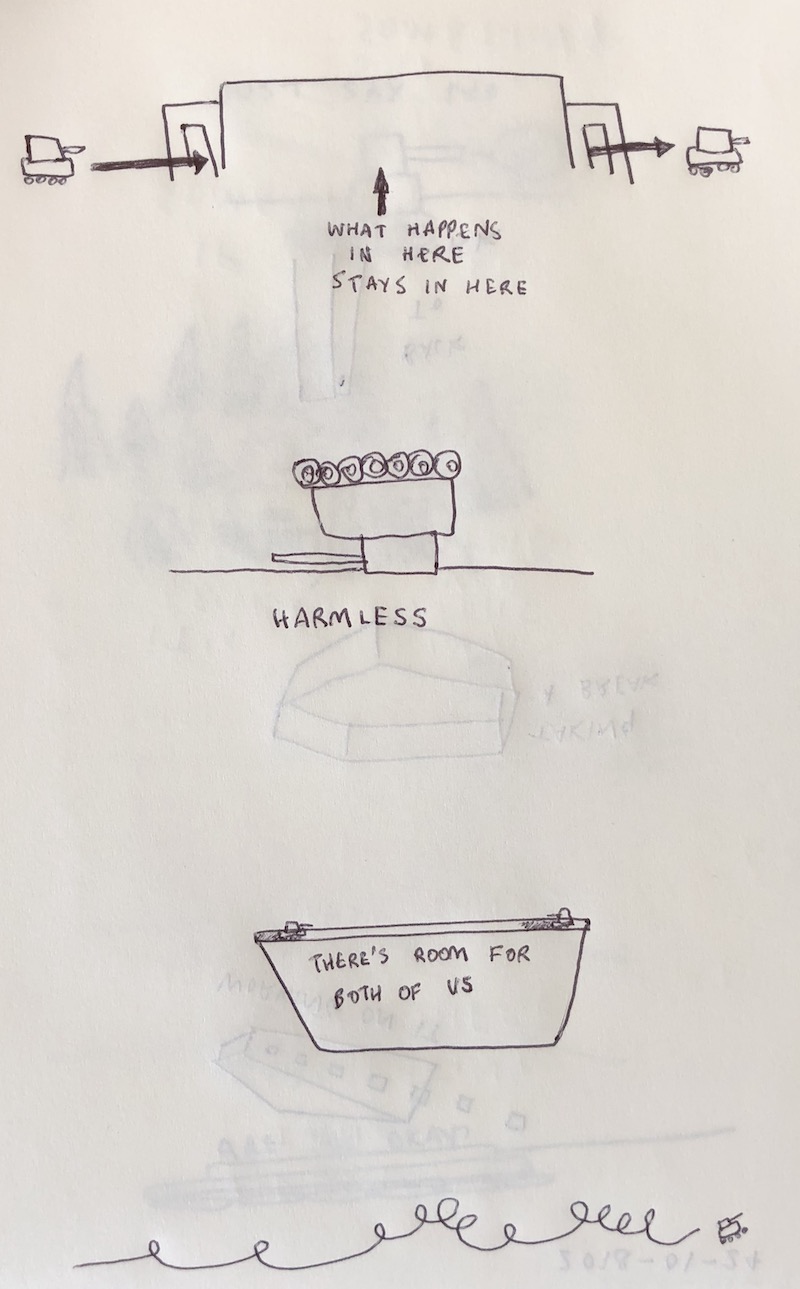 WHAT HAPPENS
IN HERE
STAYS IN HERE
HARMLESS
THERE'S ROOM FOR
BOTH OF US